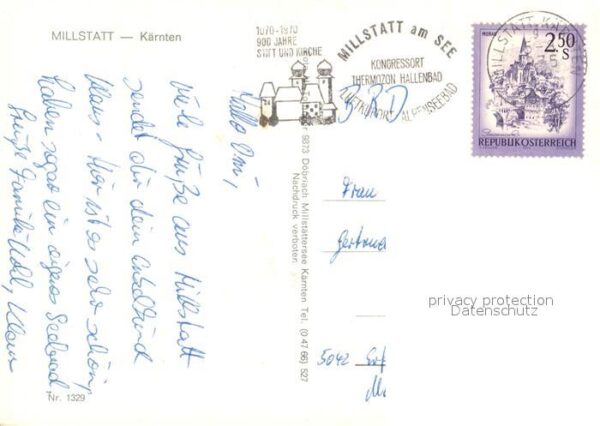 MILLSTATT — Kärnten
1070-1970
900 JAHRE
STIFT UND KIRCHE
MILLSTATT am SEE
KONGRESSORT
THERMOZON HALLENBAD
LUFTKURORT ALPENSEEBAD
MILLSTATT, KÄRNTEN
MURAU
2.50
S
REPUBLIK ÖSTERREICH
Hallo Omi,
viele Grüße aus Millstatt
sendet dir dein Enkelkind
Klaus. Hier ist es sehr schön,
haben sogar ein eigenes Seebad
Grüße Familie Kohl, Klaus
9873 Döbriach Millstättersee Kärnten Tel. (0 47 66) 527
Nachdruck verboten.
BRD
Frau
Gertrud
5042 Erf
privacy protection
Datenschutz
Nr. 1329